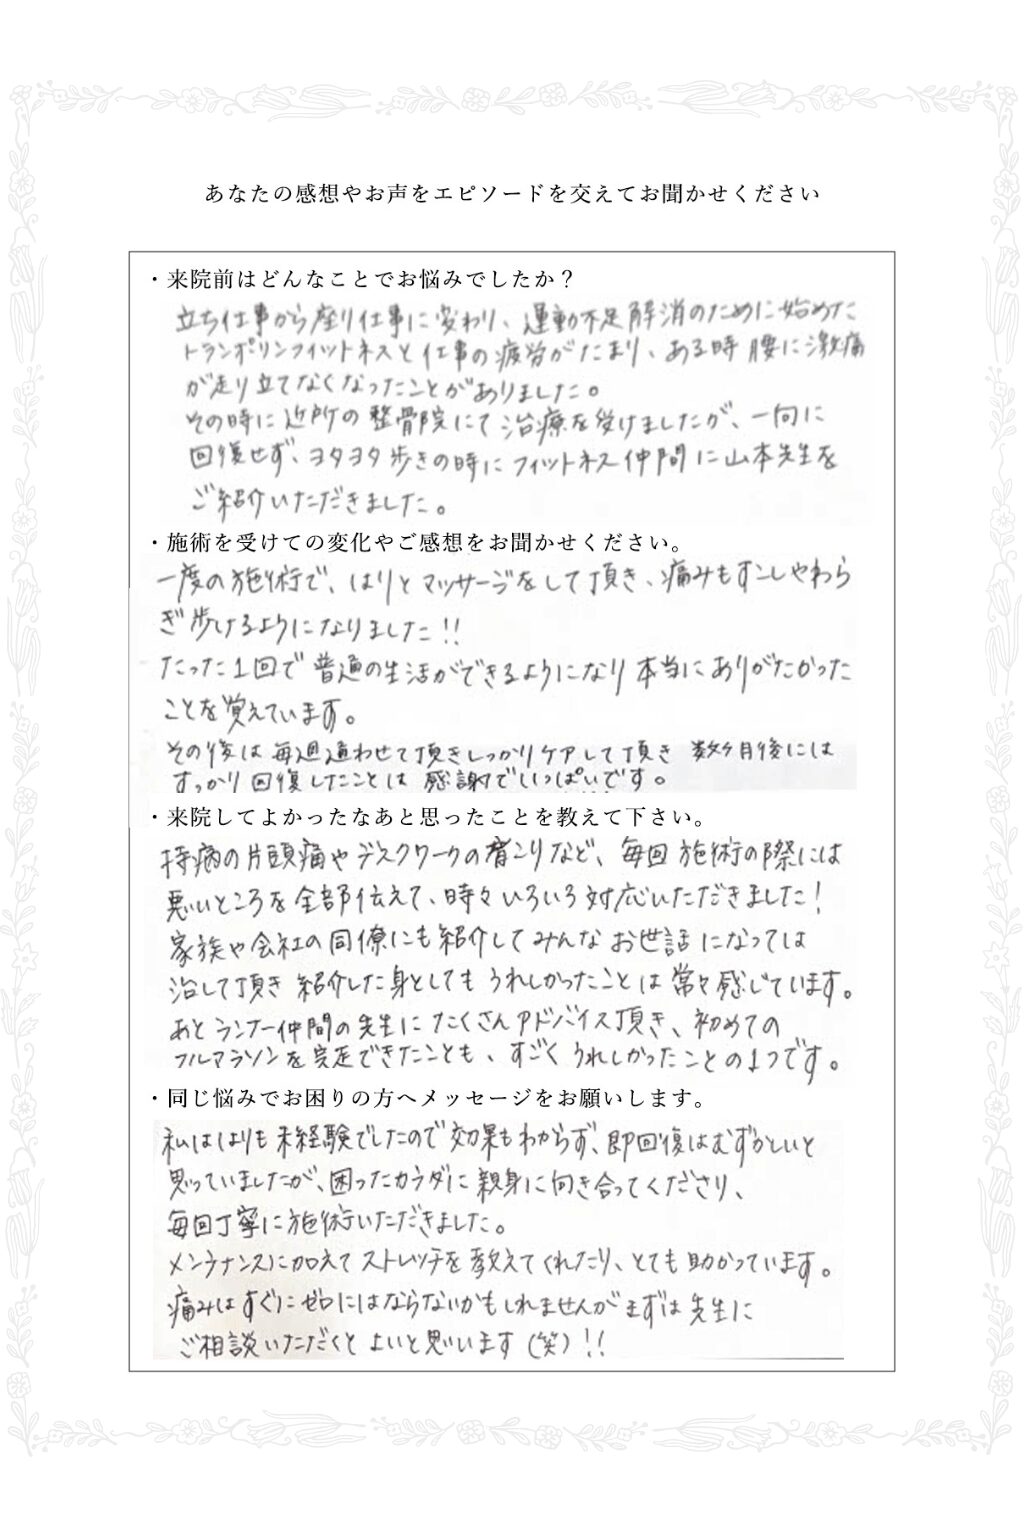 あなたの感想やお声をエピソードを交えてお聞かせください
・来院前はどんなことでお悩みでしたか？
立ち仕事から座り仕事に変わり、運動不足解消のために始めた
トランポリンフィットネスと仕事の疲労がたまり、ある時腰に激痛
が走り立てなくなったことがありました。
その時に近所の整骨院にて治療を受けましたが、一向に
回復せず、ヨタヨタ歩きの時にフィットネス仲間に山本先生を
ご紹介いただきました。
・施術を受けての変化やご感想をお聞かせください。
一度の施術で、はりとマッサージをして頂き、痛みもすこしやわら
ぎ歩けるようになりました!!
たった1回で普通の生活ができるようになり本当にありがたかった
ことを覚えています。
その後は毎週通わせて頂きしっかりケアして頂き 数ヶ月後には
すっかり回復したことは感謝でいっぱいです。
・来院してよかったなあと思ったことを教えて下さい。
持病の片頭痛やデスクワークの肩こりなど、毎回施術の際には
悪いところを全部伝えて、時々いろいろ対応いただきました!
家族や会社の同僚にも紹介してみんなお世話になっては
治して頂き紹介した身としてもうれしかったことは常々感じています。
あとランナー仲間の先生にたくさんアドバイス頂き、初めての
フルマラソンを完走できたことも、すごくうれしかったことの1つです。
・同じ悩みでお困りの方へメッセージをお願いします。
私ははりも未経験でしたので効果もわからず、即回復はむずかしいと
思っていましたが、困ったカラダに親身に向き合ってくださり、
毎回丁寧に施術いただきました。
メンテナンスに加えてストレッチを教えてくれたり、とても助かっています。
痛みはすぐにゼロにはならないかもしれませんがまずは先生に
ご相談いただくとよいと思います(笑)!!